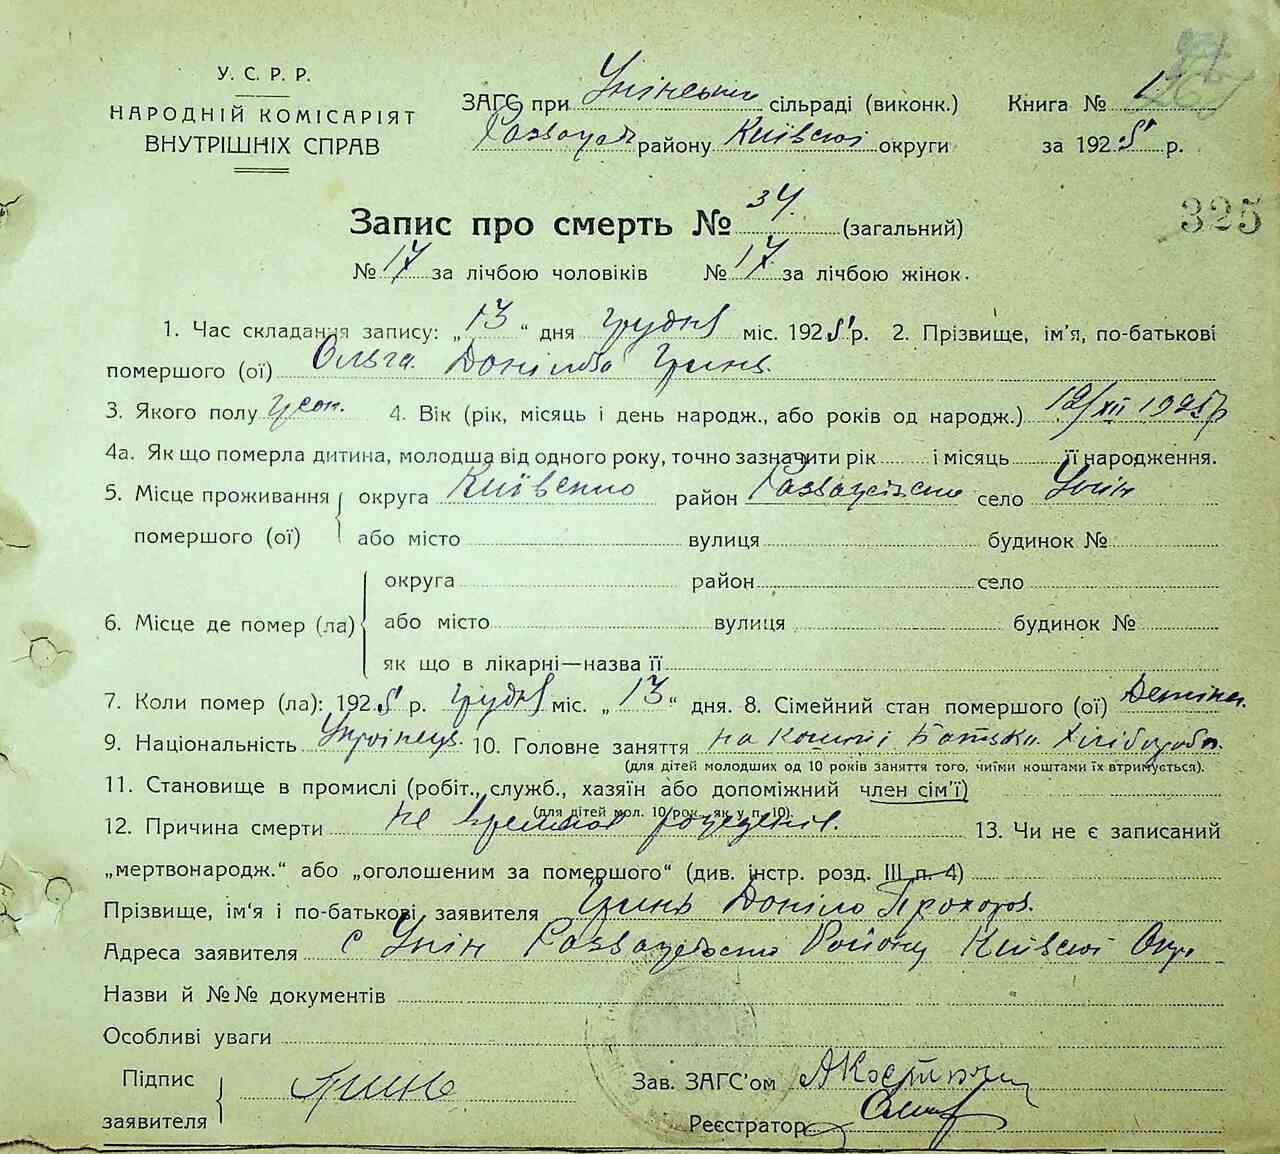 У. С. Р. Р.
НАРОДНІЙ КОМІСАРІЯТ
ВНУТРІШНІХ СПРАВ
ЗАГС при Упінської сільраді (виконк.) Книга № 1
району Київської округи за 1925 р.
325
Запис про смерть № 34 (загальний)
№ 17 за лічбою чоловіків № 17 за лічбою жінок.
1. Час складання запису: „13“ дня грудня міс. 1925 р. 2. Прізвище, ім'я, по-батькові
помершого (ої) Ольга Донілова Гринь
3. Якого полу жон. 4. Вік (рік, місяць і день народж., або років од народж.) 12/XII 1925 р
4а. Як що померла дитина, молодша від одного року, точно зазначити рік і місяць її народження.
5. Місце проживання округа район село Упін
помершого (ої) або місто вулиця будинок №
округа район село
6. Місце де помер (ла) або місто вулиця будинок №
як що в лікарні—назва її
7. Коли помер (ла): 1925 р. грудня міс. „13“ дня. 8. Сімейний стан помершого (ої) Детина
9. Національність 10. Головне заняття на кошті Батька Хлібороба
(для дітей молодших од 10 років заняття того, чиїми коштами їх втримується).
11. Становище в промислі (робіт., служб., хазяїн або допоміжний член сім'ї)
(для дітей мол. 10 рок., як у п. 10).
12. Причина смерти не 13. Чи не є записаний
„мертвонародж.“ або „оголошеним за помершого“ (див. інстр. розд. III п. 4)
Прізвище, ім'я і по-батькові заявителя Гринь Доніло Прохоров.
Адреса заявителя с Упін Району Київскої Окр
Назви й №№ документів
Особливі уваги
Підпис
заявителя Гринь
Зав. ЗАГС'ом
Реєстратор